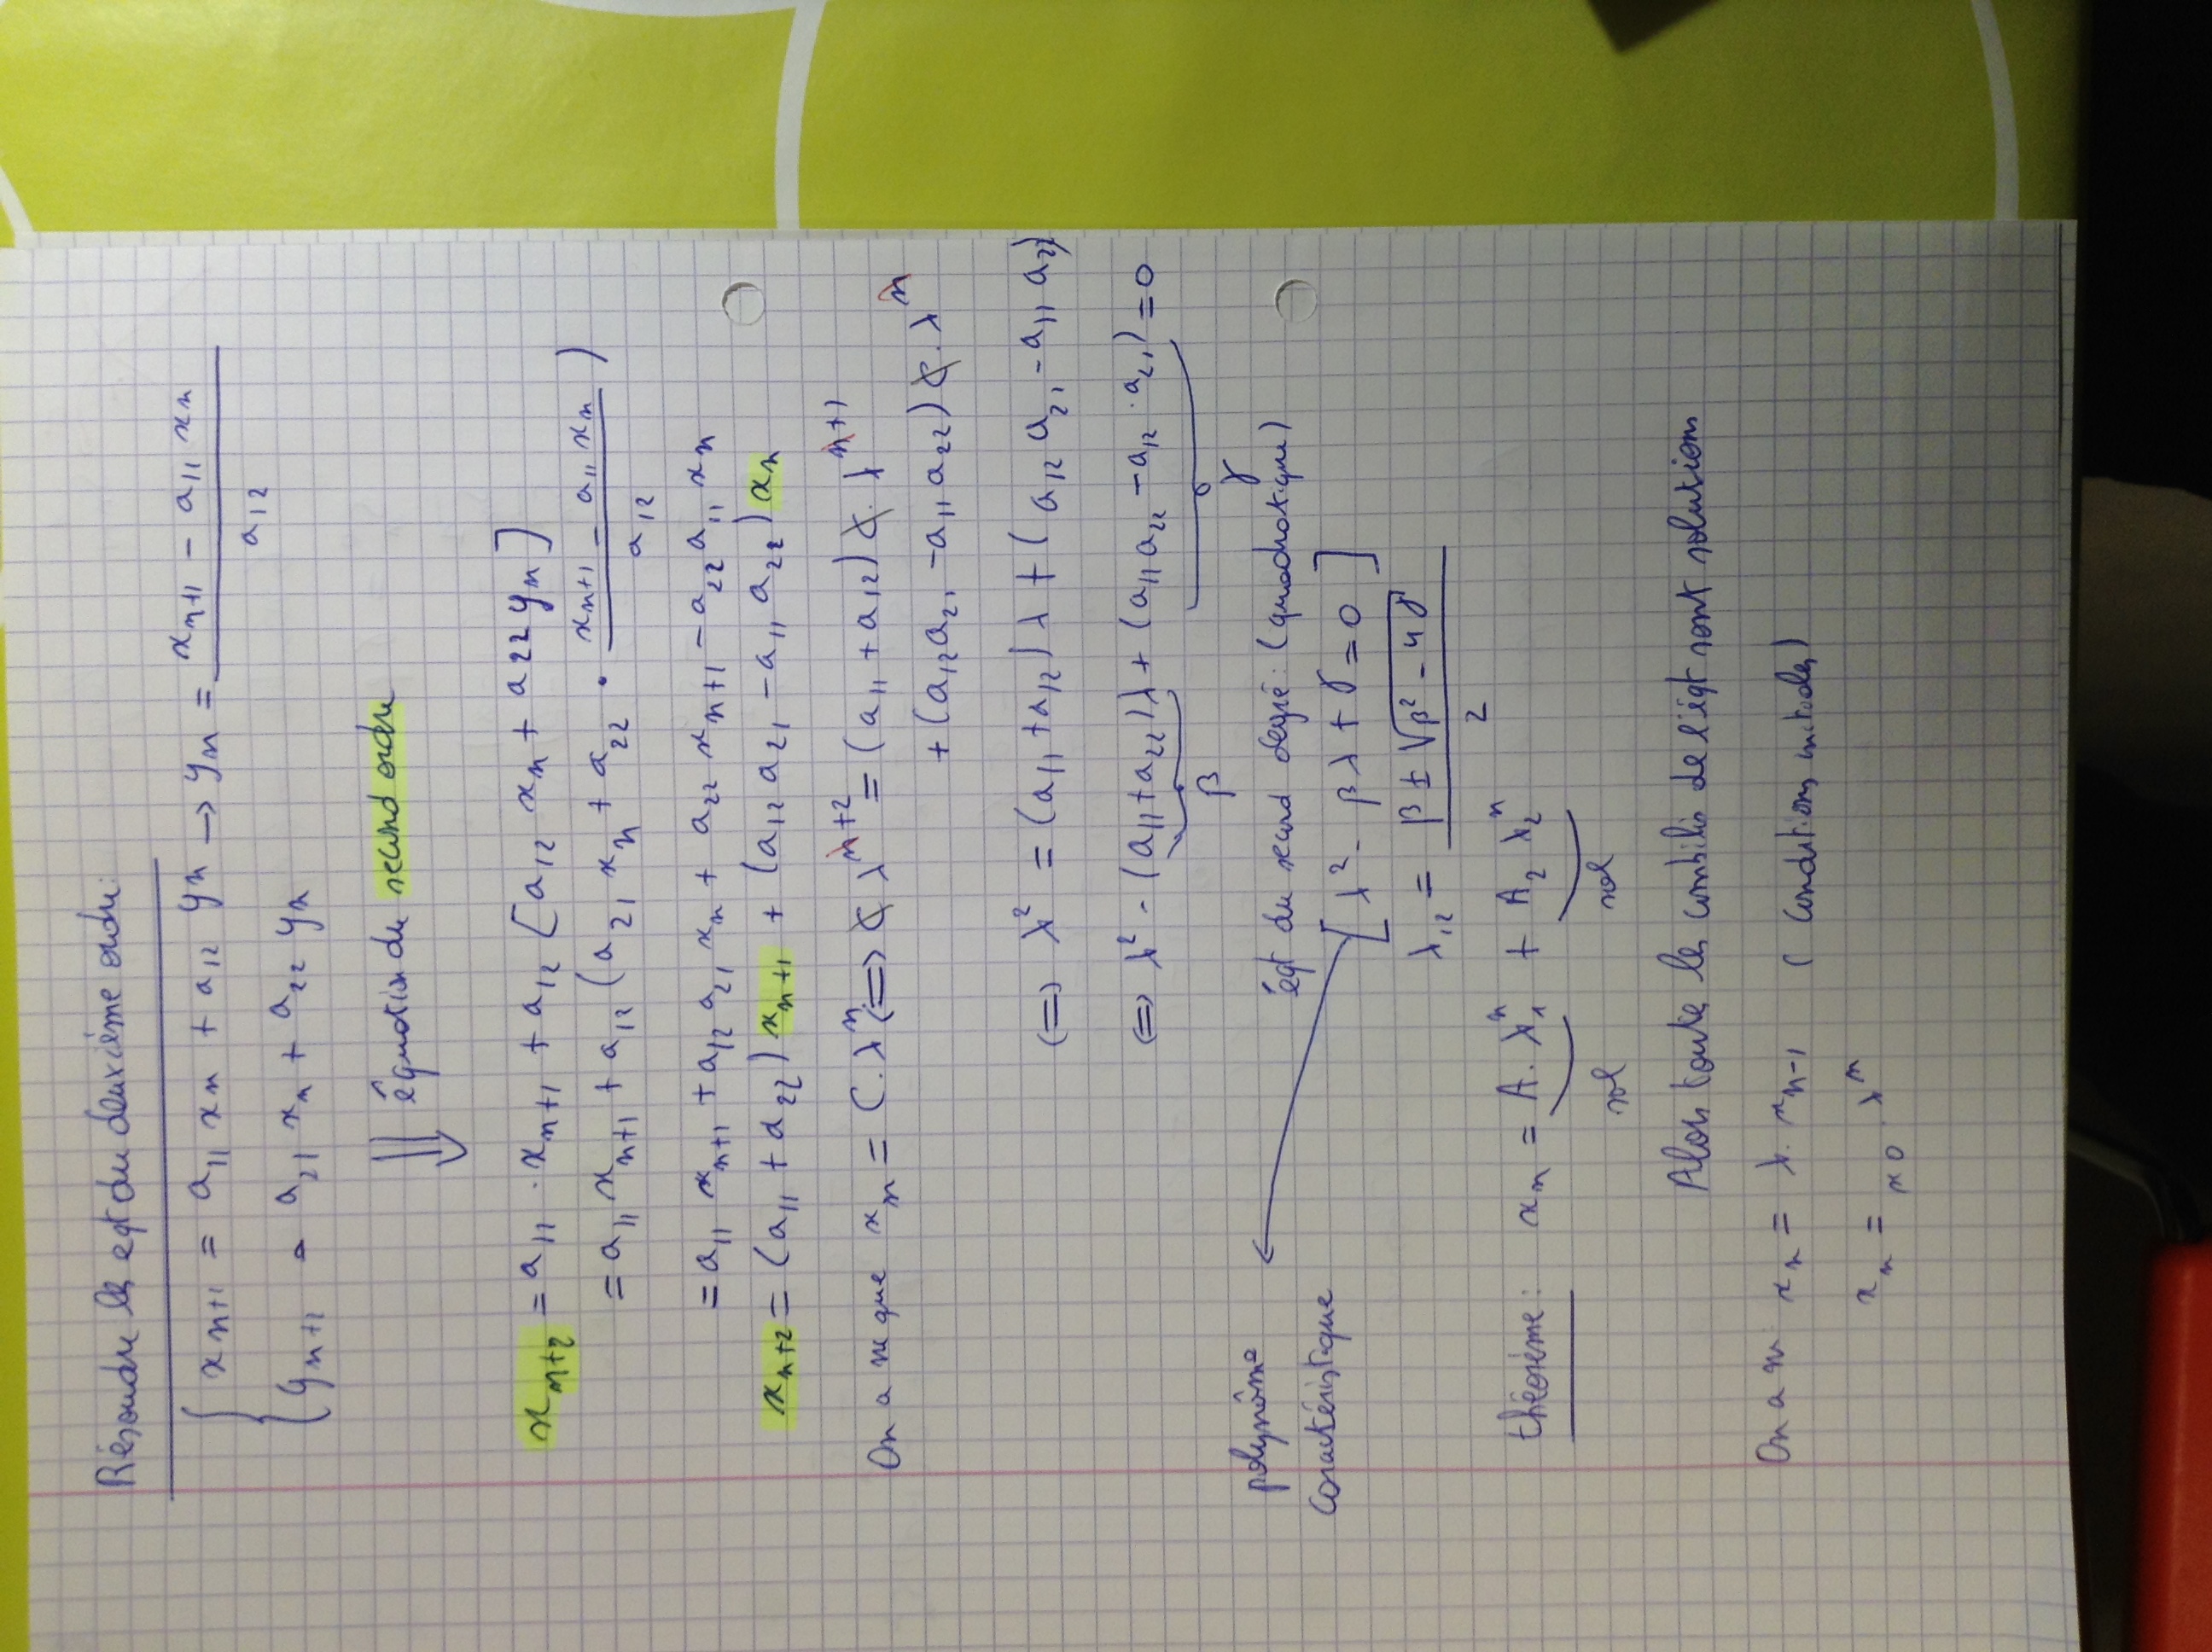 Résoudre les eqt du deuxième ordre:
{ xn+1 = a11 xn + a12 yn → yn = (xn+1 - a11 xn) / a12
{ yn+1 = a21 xn + a22 yn
⇓ équation du second ordre
xn+2 = a11 · xn+1 + a12 [a12 xn + a22 yn]
= a11 xn+1 + a12 (a21 xn + a22 · (xn+1 - a11 xn) / a12)
= a11 xn+1 + a12 a21 xn + a22 xn+1 - a22 a11 xn
xn+2 = (a11 + a22) xn+1 + (a12 a21 - a11 a22) xn
On a vu que xn = C.λ^n (=) C λ^n+2 = (a11 + a12) C. λ^n+1
+ (a12 a21 - a11 a22) C. λ^n
(=) λ² = (a11 + a12) λ + (a12 a21 - a11 a22)
(=) λ² - (a11 + a22) λ + (a11 a22 - a12 · a21) = 0
β γ
éqt du second degré: (quadratique)
polynôme caractéristique
[λ² - βλ + γ = 0]
λ1,2 = (β ± √β² - 4γ) / 2
théorème: xn = A. λ1^n + A2 λ2^n
sol sol
Alors toute les combili de l'éqt sont solutions
On a vu xn = λ. xn-1 (conditions initiales)
xn = x0 λ^n